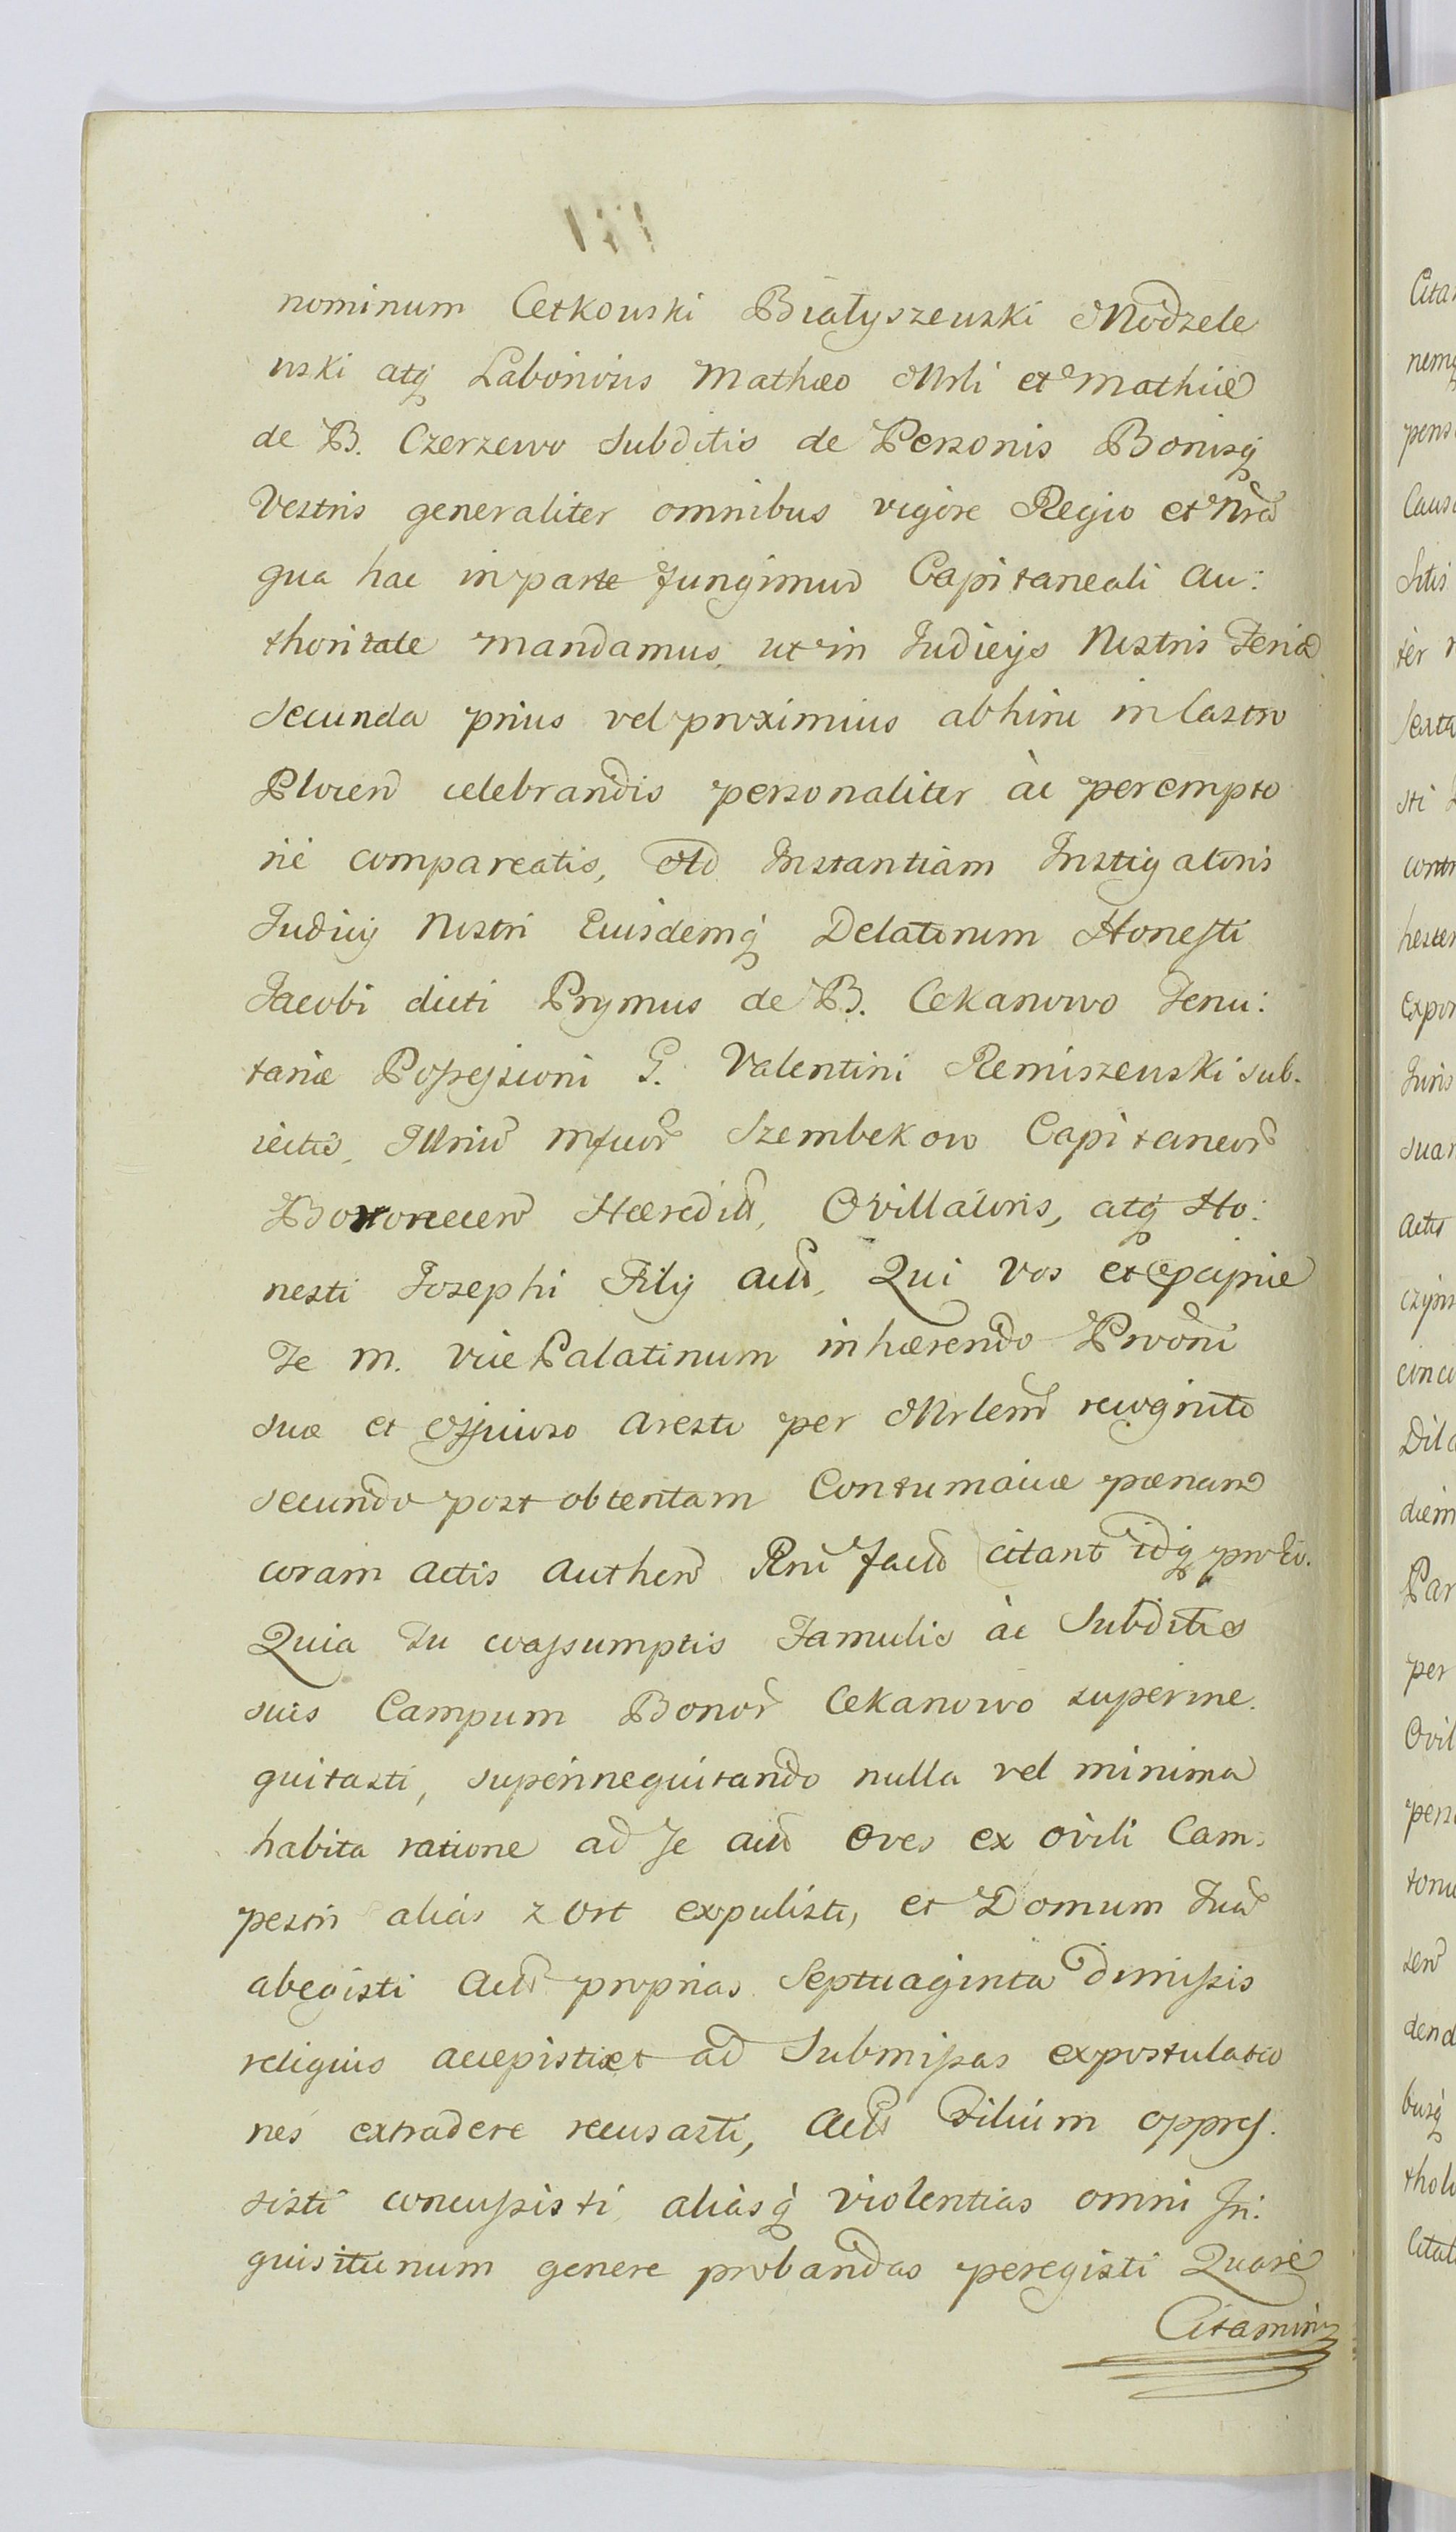 nominum Cetkowski Białyszewski Modzele
wski atq Laboriosis Mathæo Mrli et Mathiæ
de B. Czerzewo Subditis de Personis Bonisq
Vestris generaliter omnibus vigore Regio et Nra
qua hac in parte fungimur Capitaneali Au:
thoritate mandamus, ut in Judicijs Nostris Feria
Secunda prius vel proximius abhinc in Castro
Plocen celebrandis personaliter ac perempto
rie compareatis, Ad Instantiam Instigatoris
Judicij Nostri Eiusdemq Delatorum Honesti
Jacobi dicti Prymus de B. Cekanowo Tenu:
tariæ Possessioni G. Valentini Remiszewski sub-
iectis, Illrium Mfcor Szembekow Capitaneor
Hæredit, Ovillatoris, atq Ho:
nesti Josephi Filij act, Qui Vos et præcipue
Te M. Vice Palatinum inhærendo Prooni
suæ et Officioso Aresto per Mrlem recognito
secundo post obtentam Contumaciæ pænam
coram Actis Authen Rni fact citant idq pro eo.
Quia Tu coassumptis Famulis ac Subditis
suis Campum Bonor Cekanowo superine:
quitasti, superinnequitando nulla vel minima
habita ratione ad se act Oves ex ovili Cam:
pestri alias z Ort expulisti, et Domum Tua
abegisti Act proprias Septuaginta dimissis
reliquis accepisti et ad Submissas expostulatio
nes extradere recusasti, Act Filium oppres:
sisti concussisti, aliasq violentias omni In:
quisitionum genere probandas peregisti Quare
Citamini